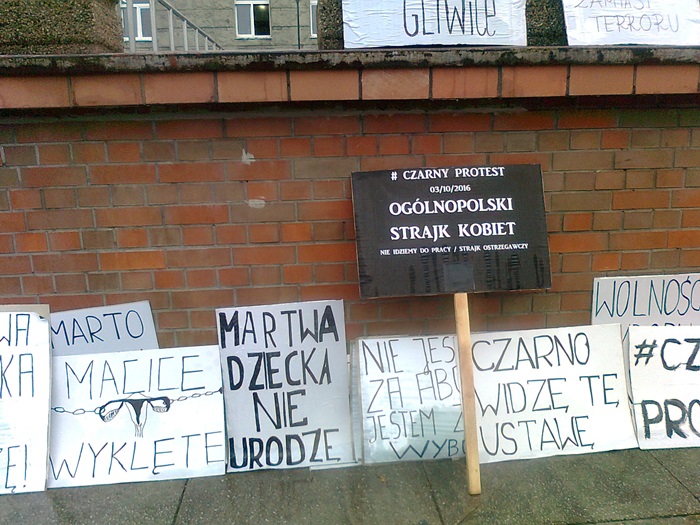 GLIWICE
ZAMIAST
TERRORU
# CZARNY PROTEST
03/10/2016
OGÓLNOPOLSKI
STRAJK KOBIET
NIE IDZIEMY DO PRACY / STRAJK OSTRZEGAWCZY
MARTO
MACICE
WYKLĘTE
MARTWA
DZIECKA
NIE
URODZĘ
NIE JES
ZA ABO
JESTEM Z
WYBO
CZARNO
WIDZĘ TĘ
USTAWĘ
WOLNOŚ
#CZ
PRO